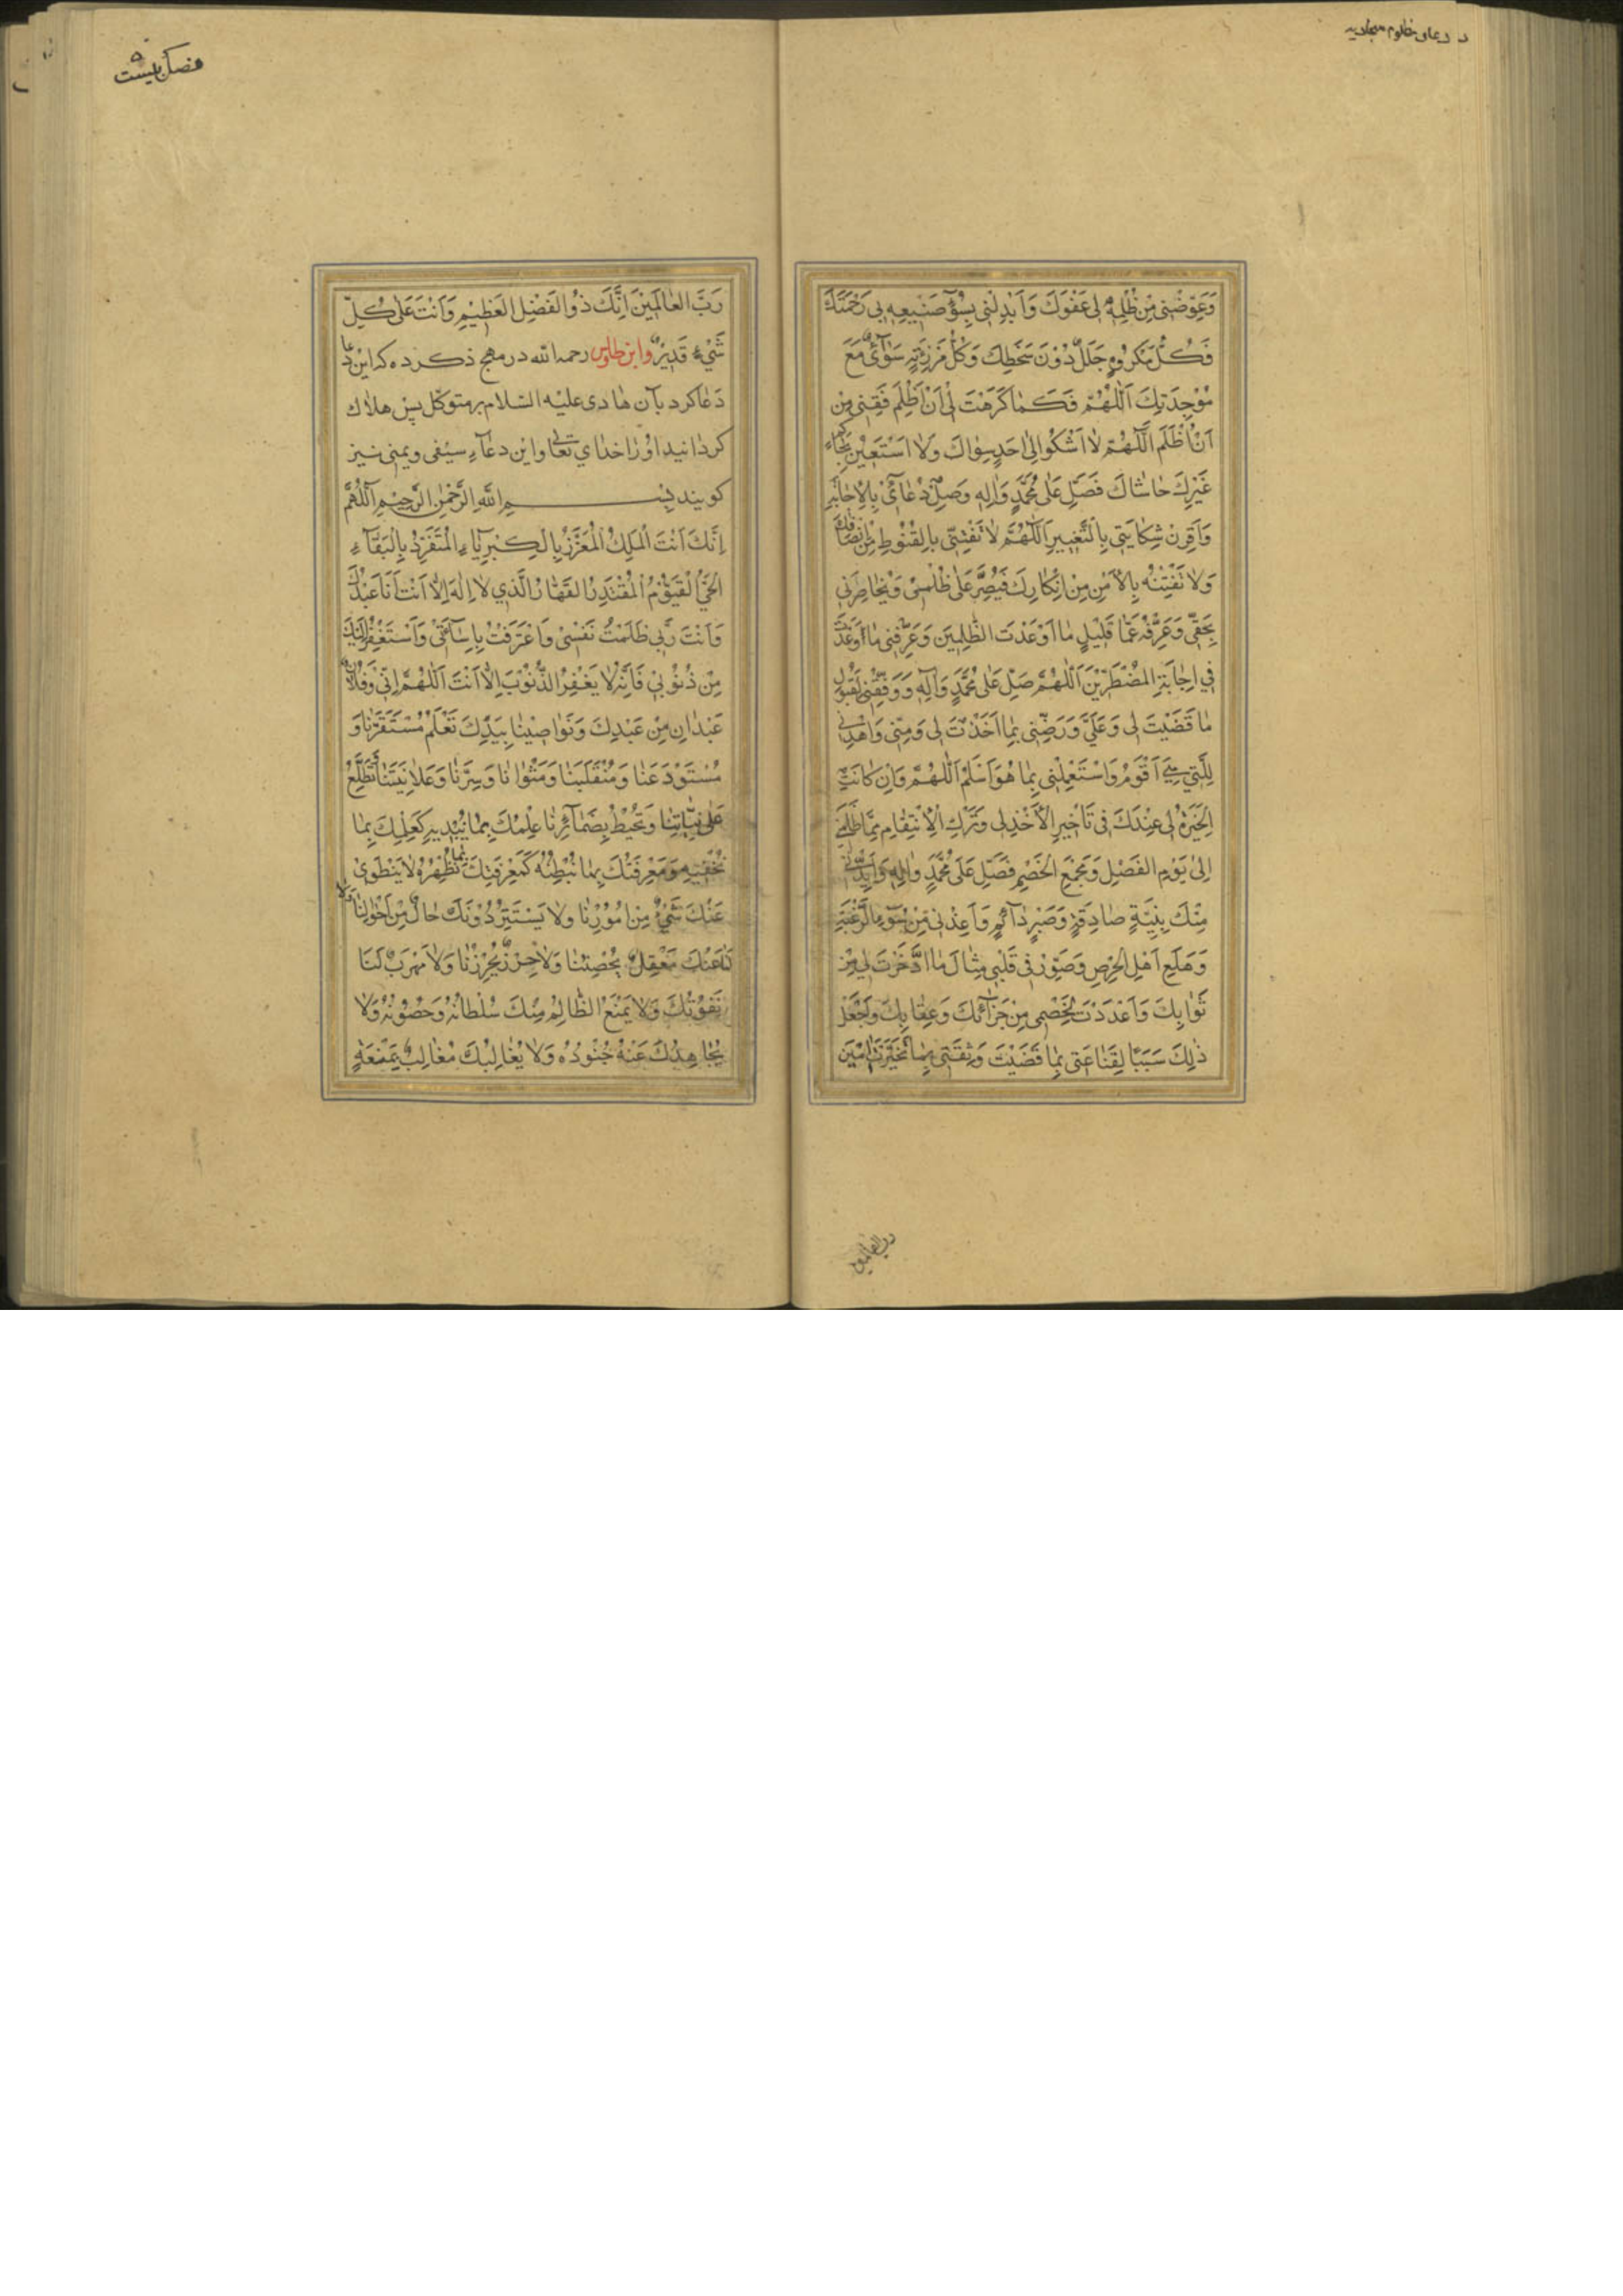 در دعای مظلوم سجادیه
وَعَوِّضْنِي مِنْ ظُلْمِهِ لِي عَفْوَكَ وَاَبْدِلْنِي بِسُوۤءِ صَنِيعِهِ بِي رَحْمَتَكَ
فَكُلُّ مَكْرُوهٍ جَلَلٌ دُوْنَ سَخَطِكَ وَكُلُّ مَرْزِئَةٍ سَوَآءٌ مَعَ
مَوْجِدَتِكَ اَللّٰهُمَّ فَكَمَا كَرَّهْتَ لِي اَنْ اَظْلِمَ فَقِنِي مِنْ
اَنْ اُظْلَمَ اَللّٰهُمَّ لَا اَشْكُو اِلٰى اَحَدٍ سِوَاكَ وَلَا اَسْتَعِيْنُ بِحَاكِمٍ
غَيْرِكَ حَاشَاكَ فَصَلِّ عَلٰى مُحَمَّدٍ وَاٰلِهِ وَصِلْ دُعَآئِي بِالْاِجَابَةِ
وَاَقْرِنْ شِكَايَتِي بِالتَّغْيِيرِ اَللّٰهُمَّ لَا تَفْتِنِّي بِالقُنُوْطِ مِنْ اِنْصَافِكَ
وَلَا تَفْتِنْهُ بِالْاَمْنِ مِنْ اِنْكَارِكَ فَيُصِرَّ عَلٰى ظُلْمِي وَيُحَاضِرَنِي
بِحَقِّي وَعَرِّفْهُ عَمَّا قَلِيْلٍ مَا اَوْعَدْتَ الظَّالِمِينَ وَعَرِّفْنِي مَا وَعَدْتَ
فِي اِجَابَةِ المُضْطَرِّيْنَ اَللّٰهُمَّ صَلِّ عَلٰى مُحَمَّدٍ وَاٰلِهِ وَوَفِّقْنِي لِقَبُوْلِ
مَا قَضَيْتَ لِي وَعَلَيَّ وَرَضِّنِي بِمَا اَخَذْتَ لِي وَمِنِّي وَاهْدِنِي
لِلَّتِي هِيَ اَقْوَمُ وَاسْتَعْمِلْنِي بِمَا هُوَ اَسْلَمُ اَللّٰهُمَّ وَاِنْ كَانَتِ
الْخِيَرَةُ لِي عِنْدَكَ فِي تَأْخِيرِ الْاَخْذِ لِي وَتَرْكِ الْاِنْتِقَامِ مِمَّنْ ظَلَمَنِي
اِلٰى يَوْمِ الفَصْلِ وَمَجْمَعِ الخَصْمِ فَصَلِّ عَلٰى مُحَمَّدٍ وَاٰلِهِ وَاَيِّدْنِي
مِنْكَ بِنِيَّةٍ صَادِقَةٍ وَصَبْرٍ دَآئِمٍ وَاَعِذْنِي مِنْ سُوۤءِ الرَّغْبَةِ
وَهَلَعِ اَهْلِ الْحِرْصِ وَصَوِّرْ فِي قَلْبِي مِثَالَ مَا ادَّخَرْتَ لِي مِنْ
ثَوَابِكَ وَاَعْدَدْتَ لِخَصْمِي مِنْ جَزَآئِكَ وَعِقَابِكَ وَاجْعَلْ
ذٰلِكَ سَبَبًا لِقَنَاعَتِي بِمَا قَضَيْتَ وَثِقَتِي بِمَا تَخَيَّرْتَ اٰمِينَ
رب العالمین
فصل بیست
رَبَّ العَالَمِيْنَ اِنَّكَ ذُو الفَضْلِ العَظِيْمِ وَاَنْتَ عَلٰى كُلِّ
شَيْءٍ قَدِيْرٌ وابن طاوس رحمه الله در مهج ذكر ده كه این دعا
دعا كرد بآن هادی علیه السلام بر متوكل پس هلاك
كردانید او را خدای تعالی و این دعآء سیفی و یمنی نیز
كویند بِسْمِ اللهِ الرَّحْمٰنِ الرَّحِيْمِ اَللّٰهُمَّ
اِنَّكَ اَنْتَ الْمَلِكُ الْمُتَعَزِّزُ بِالْكِبْرِيَآءِ الْمُتَفَرِّدُ بِالْبَقَآءِ
الْحَيُّ الْقَيُّوْمُ الْمُقْتَدِرُ القَهَّارُ الَّذِي لَا اِلٰهَ اِلَّا اَنْتَ اَنَا عَبْدُكَ
وَاَنْتَ رَبِّي ظَلَمْتُ نَفْسِي وَاعْتَرَفْتُ بِاِسَآءَتِي وَاَسْتَغْفِرُ اِلَيْكَ
مِنْ ذُنُوْبِي فَاِنَّهُ لَا يَغْفِرُ الذُّنُوْبَ اِلَّا اَنْتَ اَللّٰهُمَّ اِنِّي وَفُلَانٌ
عَبْدَانِ مِنْ عَبِيْدِكَ وَنَوَاصِيْنَا بِيَدِكَ تَعْلَمُ مُسْتَقَرَّنَا وَ
مُسْتَوْدَعَنَا وَمُنْقَلَبَنَا وَمَثْوَانَا وَسِرَّنَا وَعَلَانِيَتَنَا تَطَّلِعُ
عَلٰى نِيَّاتِنَا وَتُحِيْطُ بِضَمَآئِرِنَا عِلْمُكَ بِمَا نُبْدِيهِ كَعِلْمِكَ بِمَا
نُخْفِيْهِ وَمَعْرِفَتُكَ بِمَا نُبْطِنُهُ كَمَعْرِفَتِكَ بِمَا نُظْهِرُهُ لَا يَنْطَوِي
عَنْكَ شَيْءٌ مِنْ اُمُوْرِنَا وَلَا يَسْتَتِرُ دُوْنَكَ حَالٌ مِنْ اَحْوَالِنَا وَلَا
لَنَا عَنْكَ مَعْقِلٌ يُحْصِنُنَا وَلَا حِرْزٌ يُحْرِزُنَا وَلَا مَهْرَبٌ لَنَا
نَفُوْتُكَ وَلَا يَمْنَعُ الظَّالِمَ مِنْكَ سُلْطَانُهُ وَحُصُوْنُهُ وَلَا
يُجَاهِدُكَ عَنْهُ جُنُوْدُهُ وَلَا يُغَالِبُكَ مُغَالِبٌ بِمَنْعَةٍ